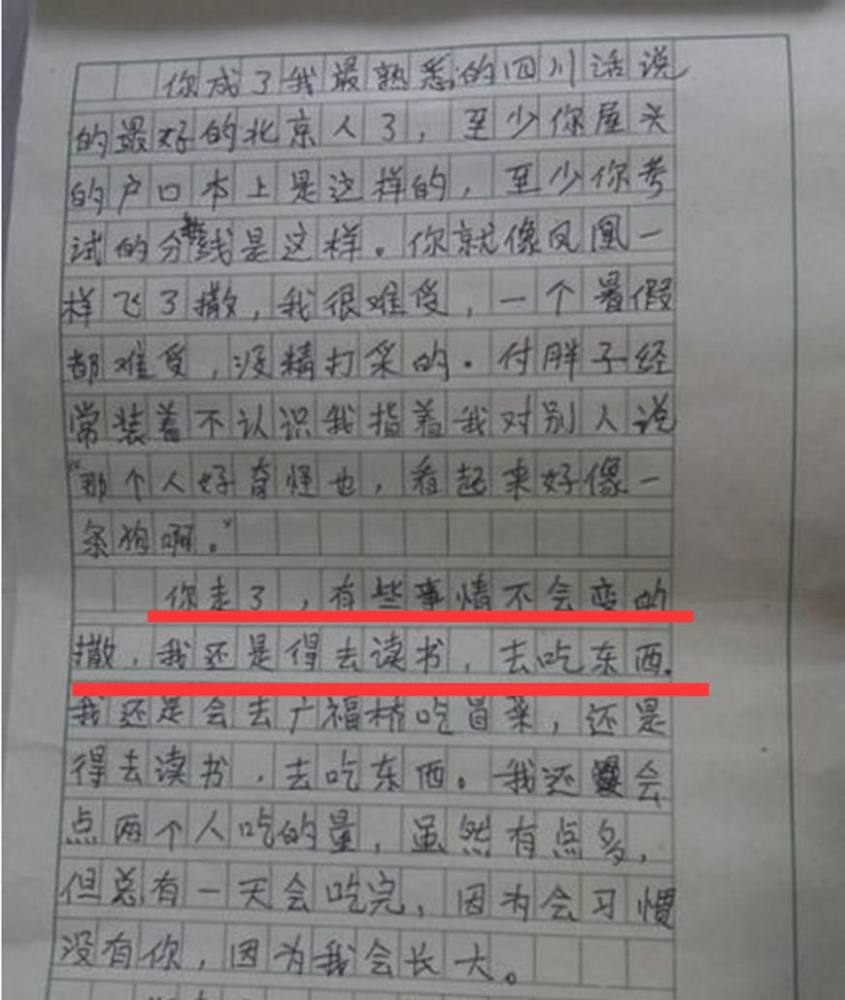 你成了我最熟悉的四川话说
的最好的北京人了，至少你屋头
的户口本上是这样的，至少你考
试的分数线是这样。你就像凤凰一
样飞了撒，我很难受，一个暑假
都难受，没精打采的。付胖子经
常装着不认识我指着我对别人说
“那个人好奇怪也，看起来好像一
条狗啊。”
你走了，有些事情不会变的
撒，我还是得去读书，去吃东西。
我还是会去广福桥吃冒菜，还是
得去读书，去吃东西。我还会
点两个人吃的量，虽然有点多，
但总有一天会吃完，因为会习惯
没有你，因为我会长大。